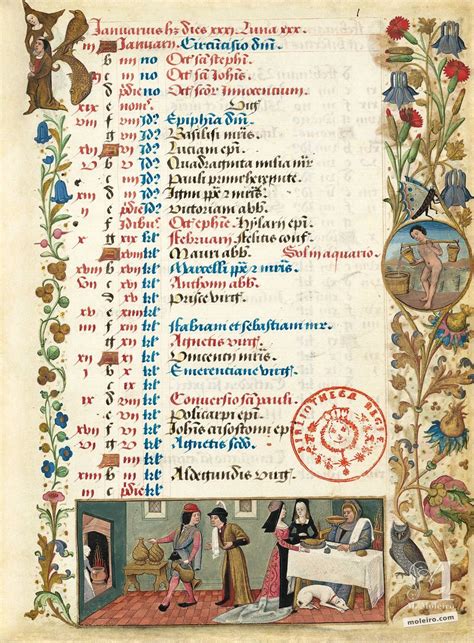 Januarius hz dies xxxi. Luna xxx.
iii Januarii Circūcisio dñi.
b iiii no Oct sc̄i stephi.
xi c iii no Oct sc̄i Johis.
d pdie no Oct sc̄or innocentium
xix e nonas. Vig
viii f viii Idz Epiphīa dñi.
g vii Idz Basilissi mr̄is.
xvi vi Idz Luciani epi.
v b v Idz Quadraginta milia mr̄
c iiii Idz Pauli primi heremite.
xiii d iii Idz Igini ppe z mr̄is.
ii e pdie Idz Victoriani abb.
f Idibus Oct ephie. Hylarij epi.
x g xix kl februarij felicis conf.
xviii kl Mauri abb. Sol in aquario.
xviii b xvii kl Marcelli ppe z mr̄is.
vii c xvi kl Anthonij abb.
d xv kl Prisce virg.
xv e xiiii kl
iiii f xiii kl fabiani et sebastiani mr.
g xii kl Agnetis virg.
xii xi kl Vincentij mr̄is.
i b x kl Emerenciane virg.
c ix kl
ix d viii kl Conversio sc̄i pauli.
e vii kl Policarpi epi.
xvii f vi kl Johis crisostomi epi.
vi g v kl Agnetis scdo.
iiii kl
xiiii b iii kl Aldegundis virg.
iii c pdie kl
BIBLIOTHECA REGIA
M. Moleiro
moleiro.com